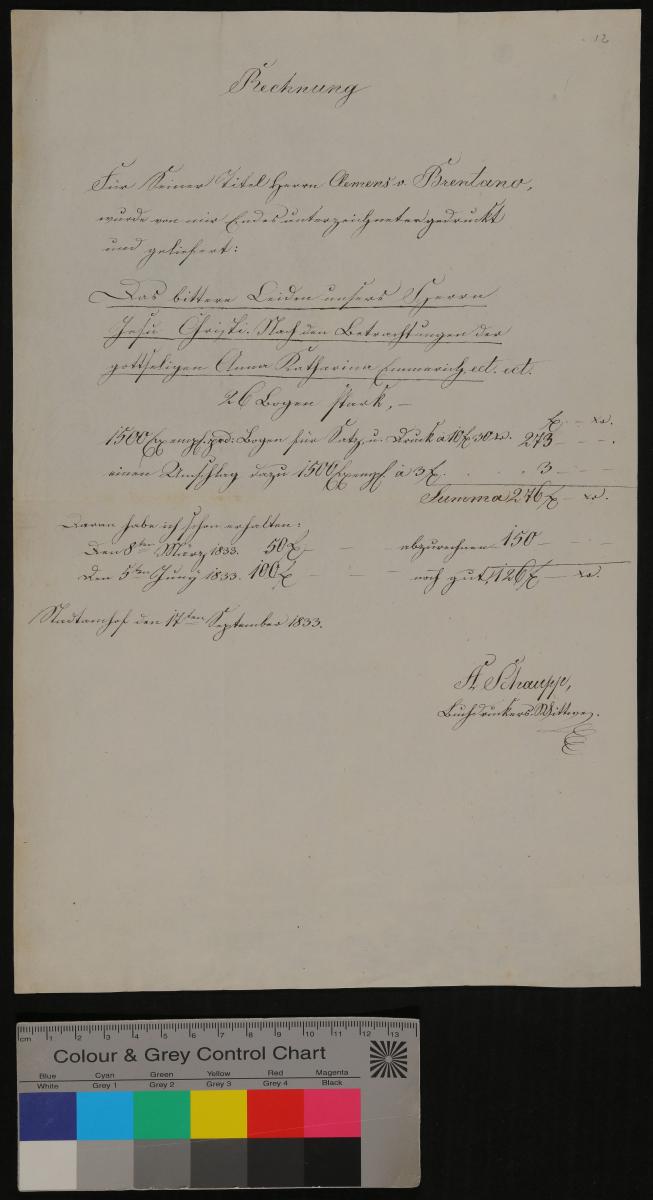 12
Rechnung
Für Seiner Titel Herrn Clemens v Brentano,
wurde von mir Endesunterzeichneter gedruckt
und geliefert:
Das bittere Leiden unsers Herrn
Jesu Christi. Nach den Betrachtungen der
gottseligen Anna Katharina Emmerich, ect. ect.
26 Bogen stark, –
f. – xr.
1500 Exempl. pro: Bogen für Satz u. Druck à 10 f 30 xr. 273 – – .
einen Umschlag dazu 1500 Exempl. à 3 f. . . " 3 – –
Summa 276 f – xr.
Daran habe ich schon erhalten:
Den 8ten März 1833. 50 f – – abzurechnen 150 – – .
Den 5ten Juny 1833. 100 f – – noch gut, 126 f – xr.
Stadtamhof den 17ten September 1833.
A. Schaupp,
Buchdruckers-Wittwe.
cm 1 2 3 4 5 6 7 8 9 10 11 12 13
Colour & Grey Control Chart
Blue Cyan Green Yellow Red Magenta
White Grey 1 Grey 2 Grey 3 Grey 4 Black